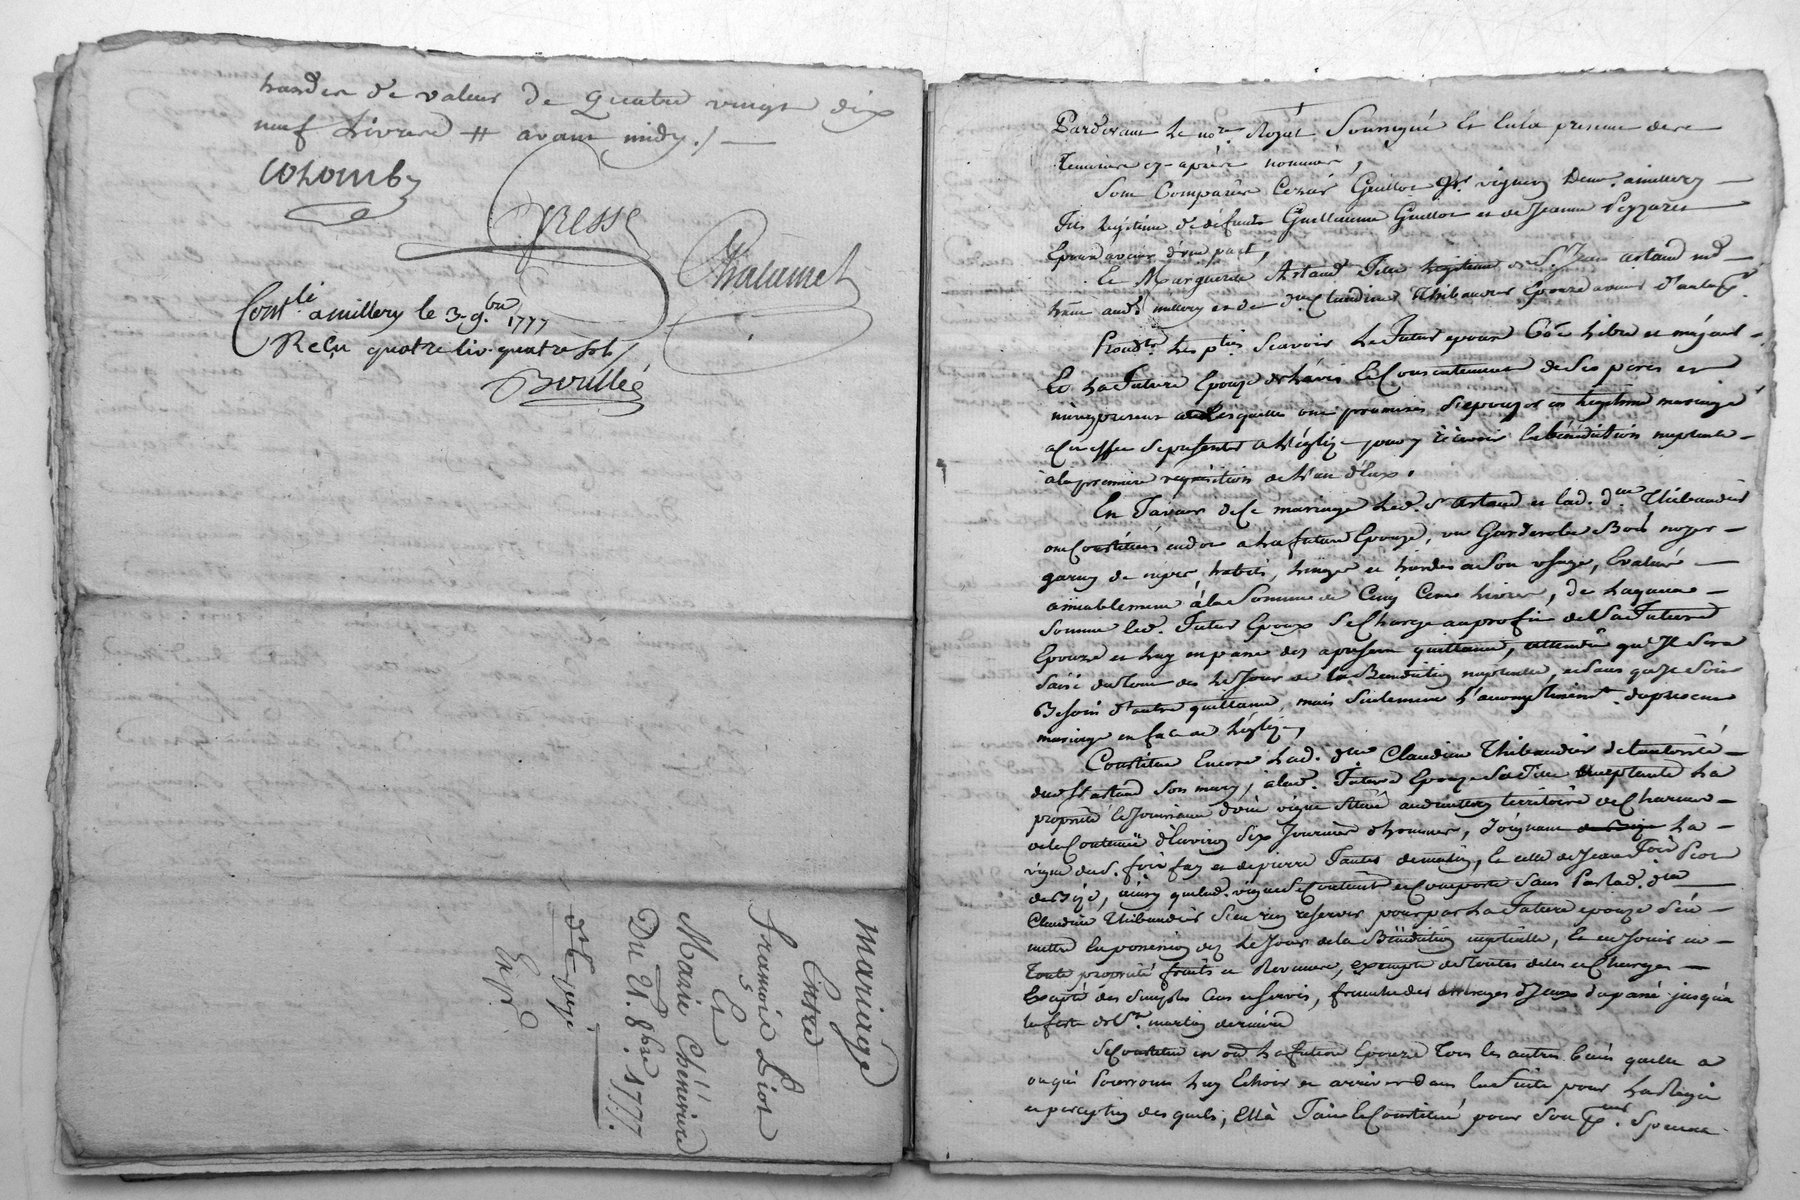 hardes de valeur de quatre vingt dix
neuf Livres # avant midy ./.
Colomb
Gresse
Chalumet
Con.lé a millery le 3 9.bre 1777
Reçu quatre liv. quatre sols
Boullée
Mariage
Entre
francois Liot
Et
Marie Chénerier
Du 21. 8bre. 1777.
Exp.é
Pardevant Le no.re Royal Soussigné Et En la presence des
temoins cy-aprés nommés,
Sont Comparus Cezar Guillot vigneron Dem.t a millery
fils legitime de défunts Guillaume Guillot et de Jeanne
Epoux avenir d'une part,
Et Marguerite Artaud fille legitime de S.r Jean artaud
aud. millery et de d.lle Claudine Thibaudier Epouze avenir d'autre p.t
Lesq.les p.ties Scavoir Le futur epoux Co͞e Libre et majeur
Et La future Epouze de L'avis Et Consentement de Ses pere et
mere presents Lesquelles ont promis de S'epouzer en Legitime mariage
a Cet effet Se presenter a L'églize pour y recevoir la bénédiction nuptiale
a la premiere requisition de L'un d'Eux.
En faveur de Ce mariage Led. S.r Artaud et lad. d.me Thibaudier
ont Constitués en dot a La future Epouze, un Garderobe Bois noyer
garny de nipes, habits, Linges et hardes a Son usage, Evalués
amiablement á la Somme de Cinq Cent Livres, de Laquelle
Somme led. futur Epoux Se Charge au profit de La future
Epouze et Luy en passe dez a present quittance, attendu qu'Il Sera
Saisi du tout des Le Jour de la Benediction nuptiale, et Sans qu'Il Soit
Besoin d'autre quittance, mais Seulement L'acomplissem.t du present
mariage en face de L'églize,
Constitue Encore Lad. d.me Claudine Thibaudier de L'autorité
dud. S.r artaud Son mary, a lad. future Epouze Sa fille acceptante La
propriété et Jouissance d'une vigne Située aud. millery territoire de
de la Contenüe d'Environ Six Journées d'hommes, Joignant La
vigne du S. et de pierre de matin, Et celle de Jean
de bize, ainsy que lad. vigne Se Contient et Comporte Sans par lad. d.me
Claudine Thibaudier S'en rien reserver pour par La future epouze S'en
mettre En possession dez Le Jour de la Bénédiction nuptiale, Et en Jouir en
toute propriété fruits et Revenus, exempte de toutes dettes et Charges
Excepté des Simples Cens et Servis, franche des arrerages d'Iceux du passé jusqu'a
la fete de S.t martin derniere
Se Constitue en outre La future Epouze tous les autres biens quelle a
ou qui Pourront Luy Echoir et arriver dans La Suite pour La Regie
et perception des quels, Elle a fait Et Constitué pour Son